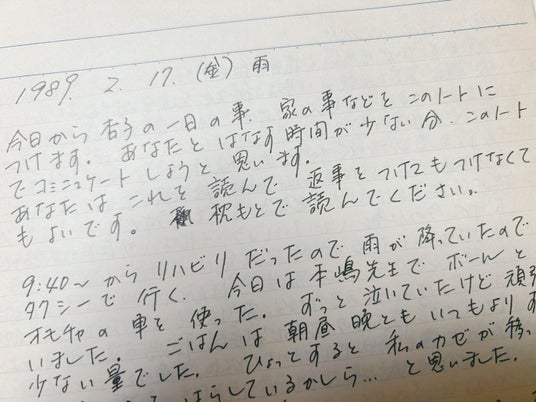 1989. 2. 17. (金) 雨
今日から杏子の一日の事、家の事などをこのノートに
つけます。あなたとはなす時間が少ない分、このノート
でコミニュケートしようと思います。
あなたはこれを読んで返事をつけてもつけなくて
もよいです。枕もとで読んでください。
9:40〜からリハビリだったので雨が降っていたので
タクシーで行く。今日は本嶋先生でボールと
オモチャの車を使った。ずっと泣いていたけど頑張
いました。ごはんは朝昼晩ともいつもより
少ない量でした。ひょっとすると私のカゼが移っ
はらしているかしら…と思いました。